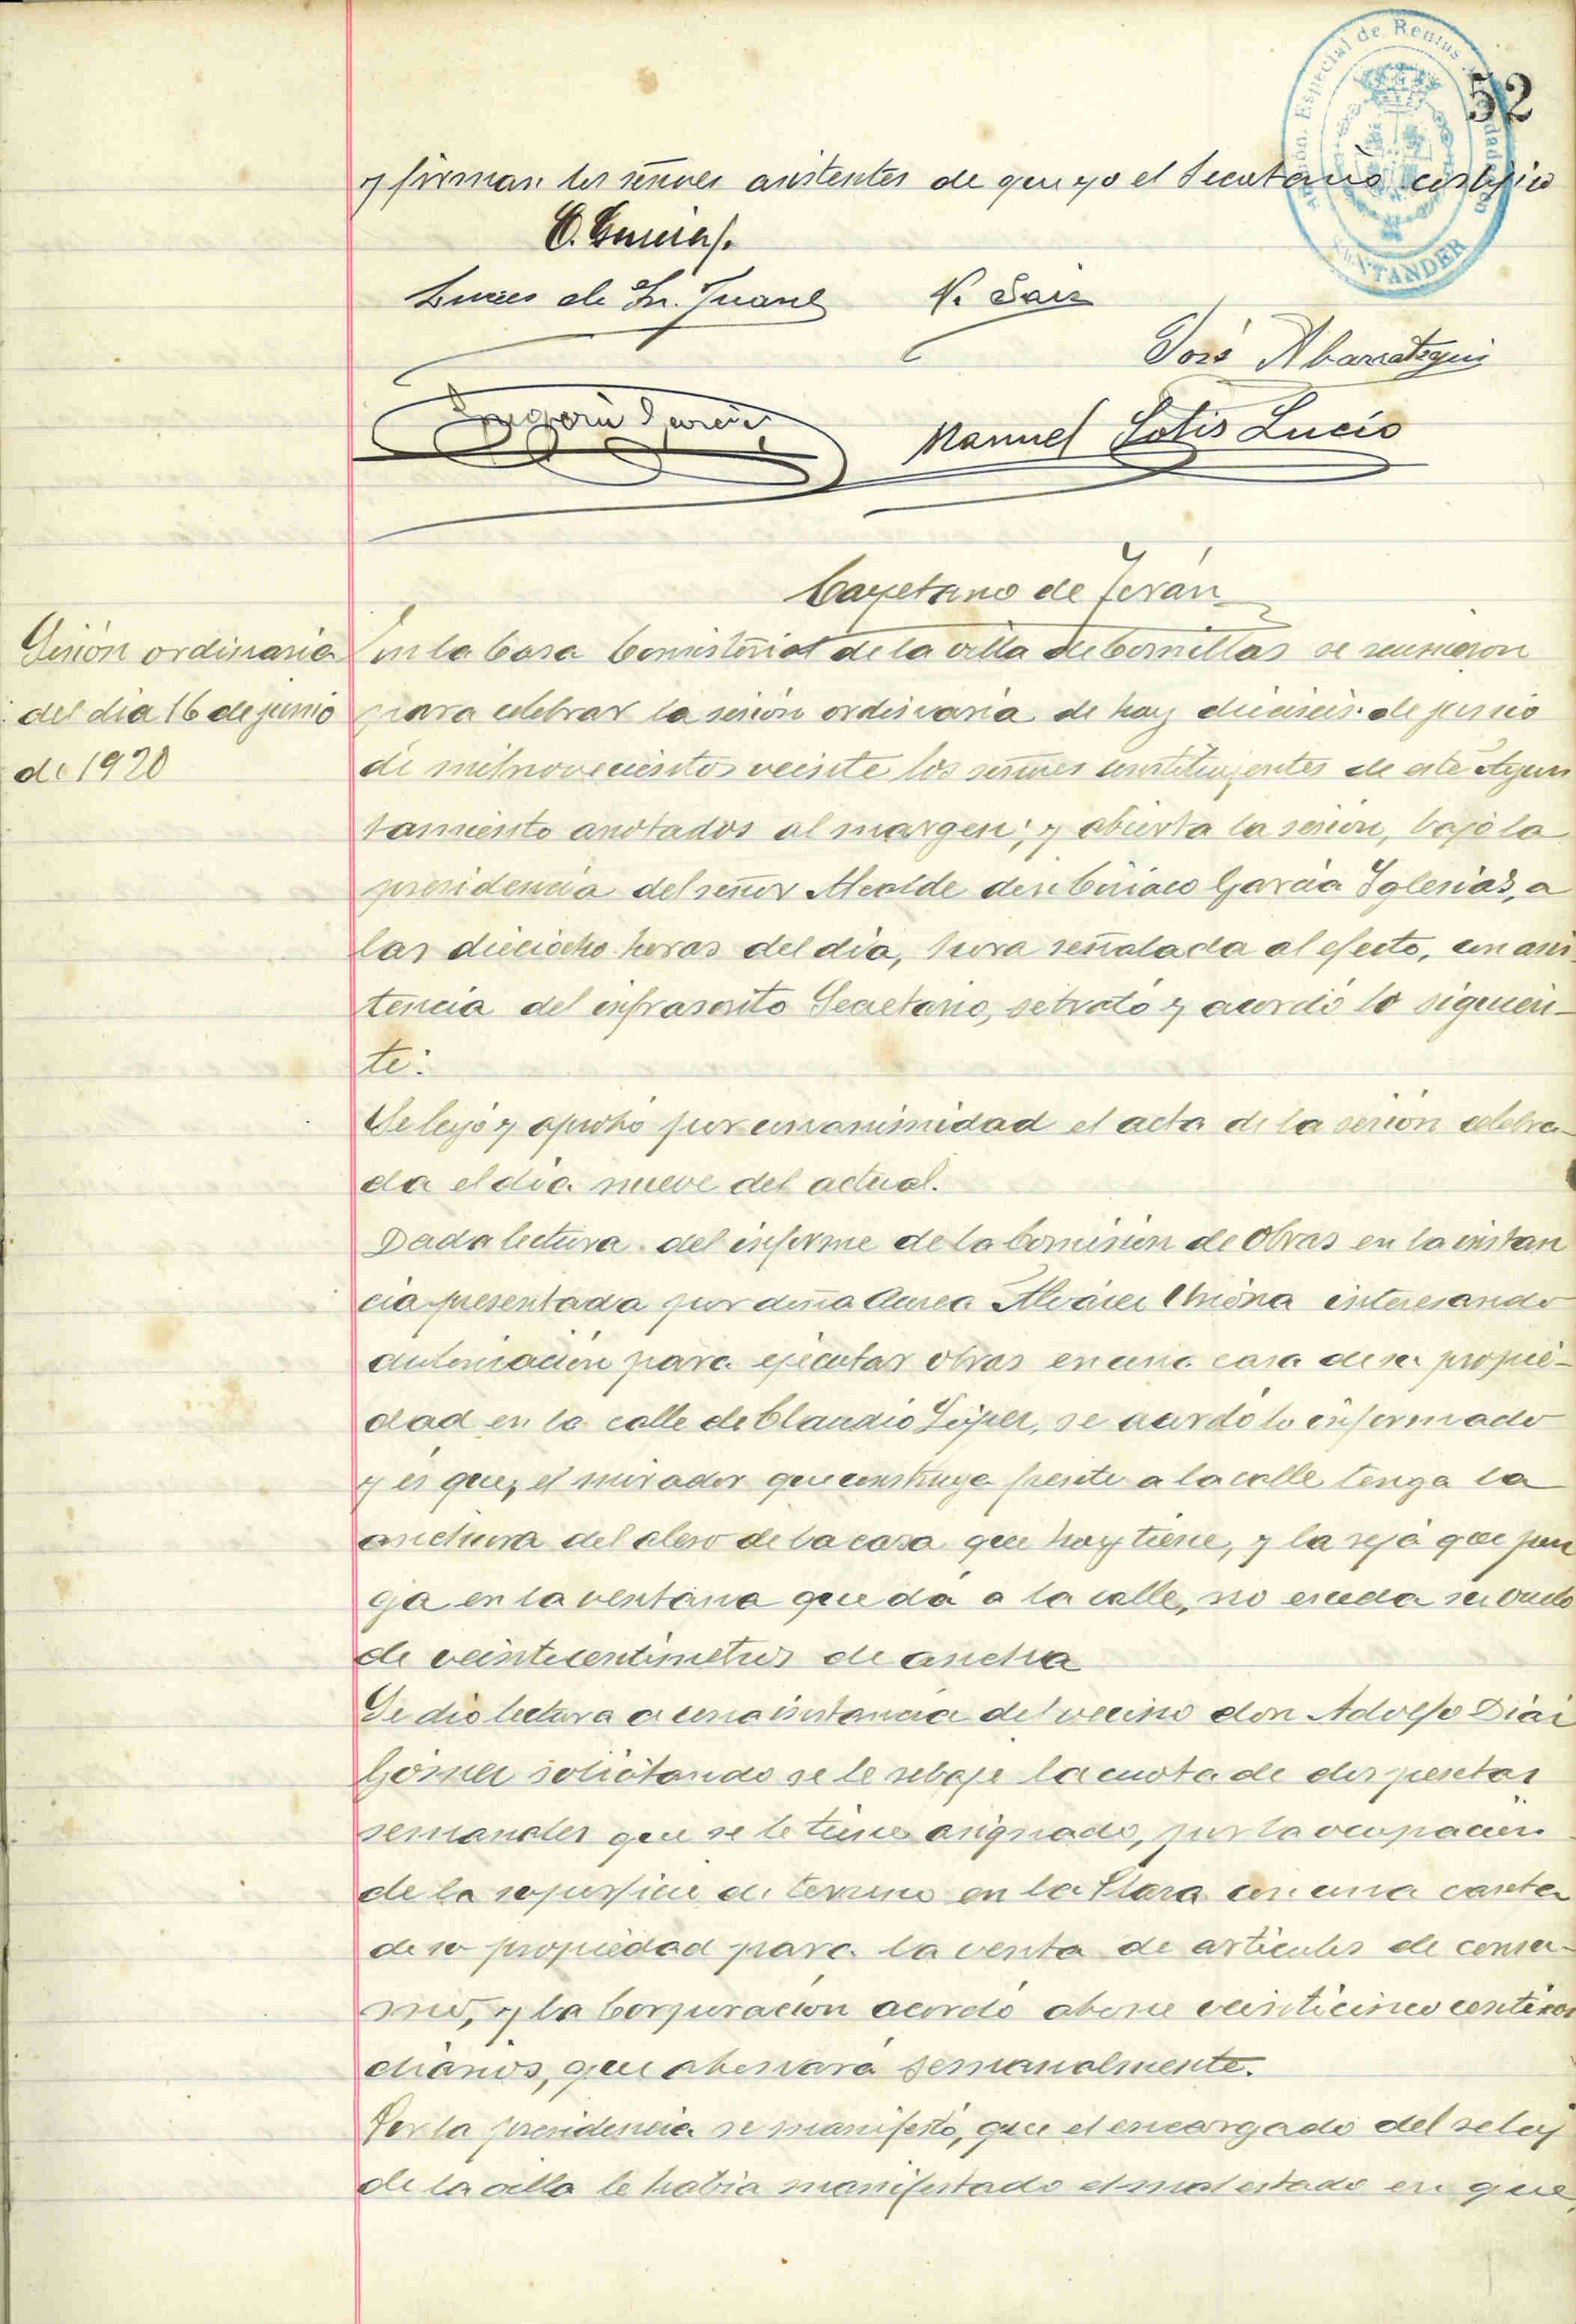 52
Especial de Rentas
SANTANDER
y firman los señores asistentes de que yo el Secretario certifico
C. García
Lucas de Sn. Juan
V. Saiz
José Abarrategui
Gregorio García
Manuel Solis Lucio
Cayetano de Terán
Sesión ordinaria
del dia 16 de junio
de 1920
En la Casa Consistorial de la villa de Comillas se reunieron
para celebrar la sesión ordinaria de hoy dieciseis de junio
de mil novecientos veinte los señores constituyentes de este Ayun
tamiento anotados al margen; y abierta la sesión, bajo la
presidencia del señor Alcalde don Ciriaco García Iglesias, a
las dieciocho horas del dia, hora señalada al efecto, con asis
tencia del infrascrito Secretario, se trató y acordó lo siguien-
te:
Se leyó y aprobó por unanimidad el acta de la sesión celebra-
da el dia nueve del actual.
Dada lectura del informe de la Comisión de Obras en la instan
cia presentada por doña Aurea Alvarez interesando
autorización para ejecutar obras en una casa de su propie-
dad en la calle de Claudio López, se acordó lo informado
y es que, el mirador que construya frente a la calle tenga la
anchura del alero de la casa que hoy tiene, y la reja que pon
ga en la ventana que dá a la calle, no exceda su vuelo
de veinte centimetros de ancha
Se dio lectura a una instancia del vecino don Adolfo Diaz
Gómez solicitando se le rebaje la cuota de dos pesetas
semanales que se le tiene asignado, por la ocupación
de la superficie de terreno en la Plaza con una caseta
de su propiedad para la venta de artículos de consu-
mo, y la Corporación acordó abone veinticinco centimos
diarios, que abonará semanalmente.
Por la presidencia se manifestó, que el encargado del reloj
de la villa le habia manifestado el mal estado en que